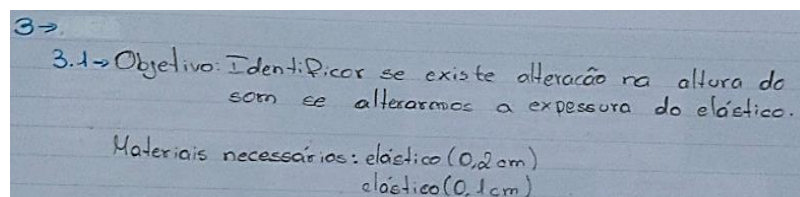 3→
3.1→Objetivo: Identificar se existe alteração na altura do
som se alterarmos a expessura do elástico.
Materiais necessários: elástico (0,2cm)
elástico (0,1cm)